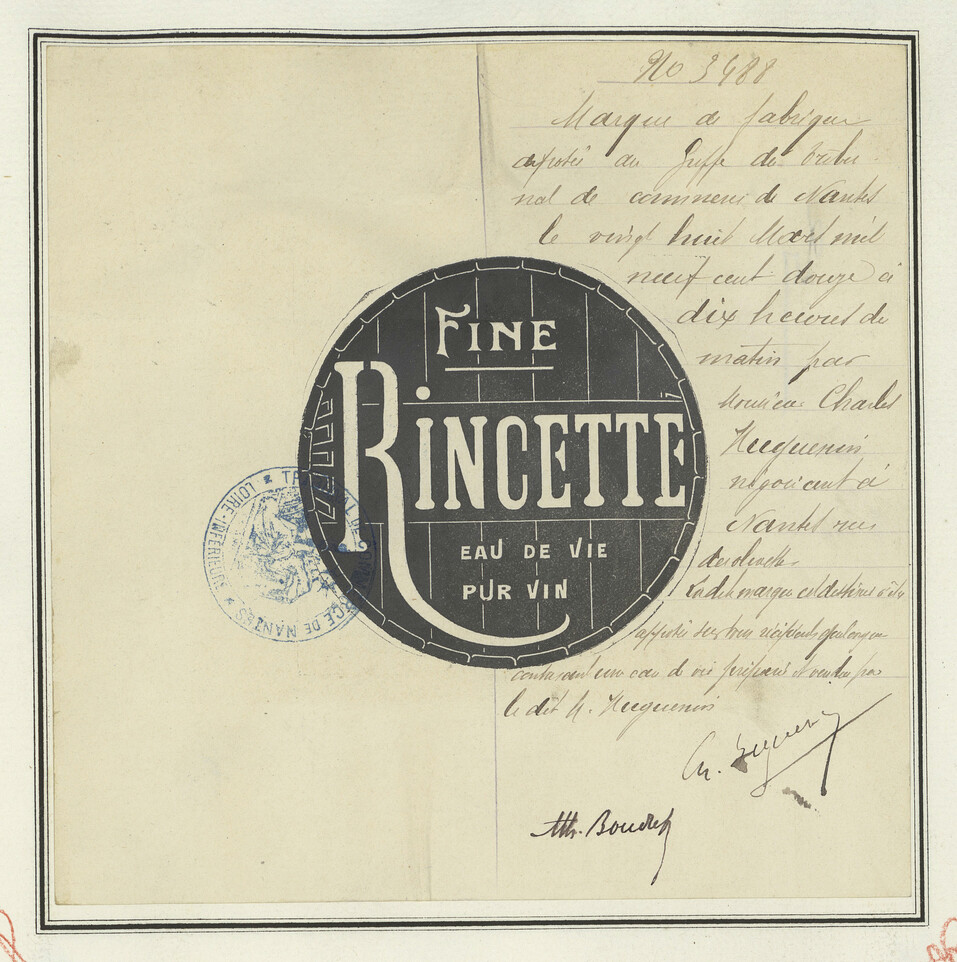 No 3488
Marque de fabrique
déposée au Greffe du Tribu
nal de commerce de Nantes
le vingt huit Mars mil
neuf cent douze à
dix heures du
matin par
Monsieur Charles
Huguenin
négociant à
Nantes rue
La dite marque est destinée à être
apposée sur tous récipients quelconques
contenant une eau de vie préparée et vendue par
le dit M. Huguenin
FINE
RINCETTE
EAU DE VIE
PUR VIN
TRIBUNAL DE COMMERCE DE NANTES
LOIRE-INFÉRIEURE
Ch. Huguenin